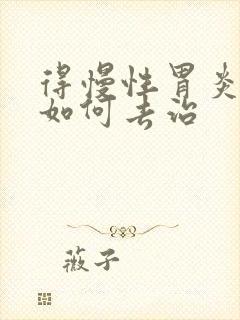 得慢性胃炎
如何去治
薇子